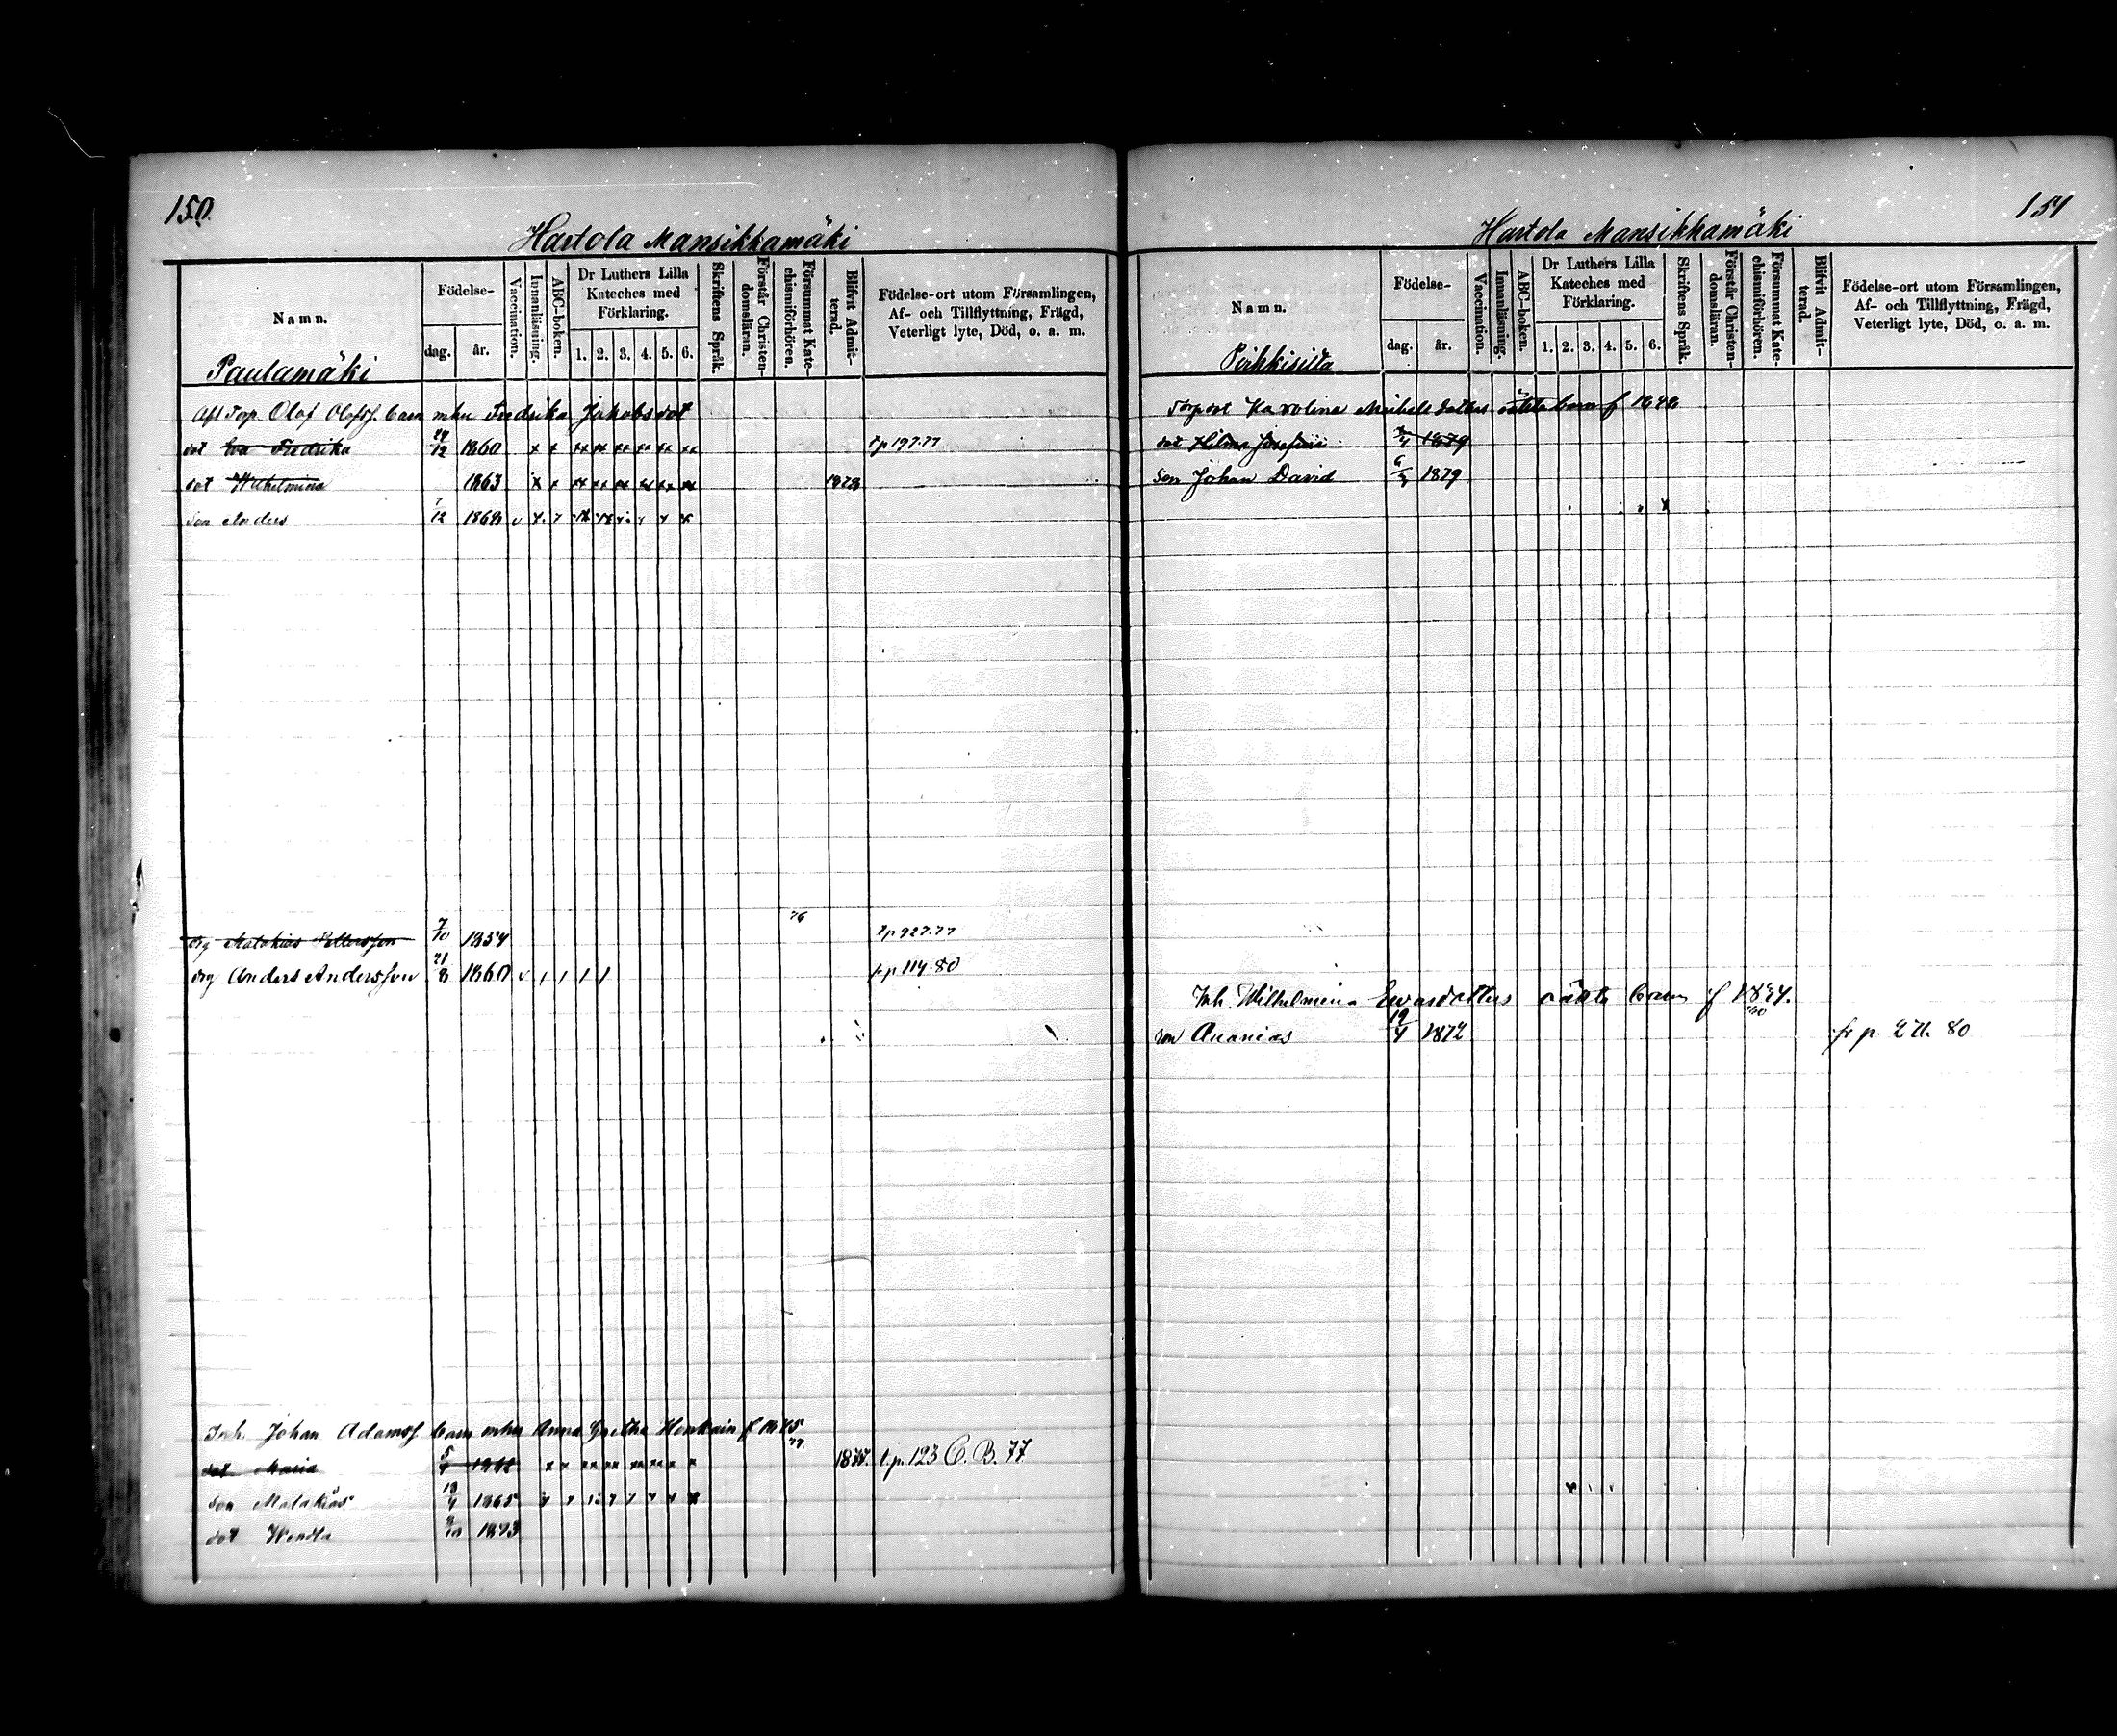 150.
Hartola Mansikkamäki
Namn.
Födelse-
dag.
år.
Vaccination.
Innanläsning.
ABC-boken.
Dr Luthers Lilla Kateches med Förklaring.
1. 2. 3. 4. 5. 6.
Skriftens Språk.
Förstår Christendomsläran.
Försummat Katechismiförhören.
Blifvit Admitterad.
Födelse-ort utom Församlingen, Af- och Tillflyttning, Frägd, Veterligt lyte, Död, o. a. m.
Paulamäki
Afl Torp. Olof Olofss. barn mhu Fredrika Jakobsdot
dot Eva Fredrika 12 1860 x x xx xx xx xx xx xx t p 197.77
dot Wilhelmina 1863 x x xx xx xx xx xx xx 1878
son Anders 7/12 1868
76
drg Malakias Pettersson 7/10 1854 t p 927.77
drg Anders Andersson 21/8 1860 fr p 114.80
Inh. Johan Adamss. barn mhu Anna Gretha Honkain f 1865
77
dot Maria 5/4 t.p. 123 C. B. 77
son Malakias 18/4 1865
dot Wendla 1873
151
Hartola Mansikkamäki
Namn.
Födelse-
dag.
år.
Vaccination.
Innanläsning.
ABC-boken.
Dr Luthers Lilla Kateches med Förklaring.
1. 2. 3. 4. 5. 6.
Skriftens Språk.
Förstår Christendomsläran.
Försummat Katechismiförhören.
Blifvit Admitterad.
Födelse-ort utom Församlingen, Af- och Tillflyttning, Frägd, Veterligt lyte, Död, o. a. m.
Pirkkisilta
Torp dot Karolina Mickels dotters oäkta barn f 1848
dot Hilma Josefina 1879
son Johan David 1879
Inh. Wilhelmina Evasdotters oäkta barn f
son Ananias 19/4 1872 fr p. 80